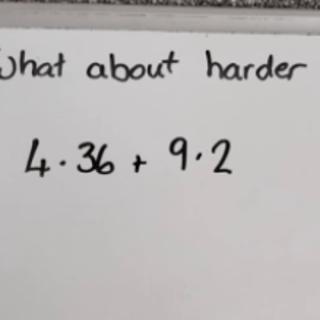 What about harder
4.36 + 9.2